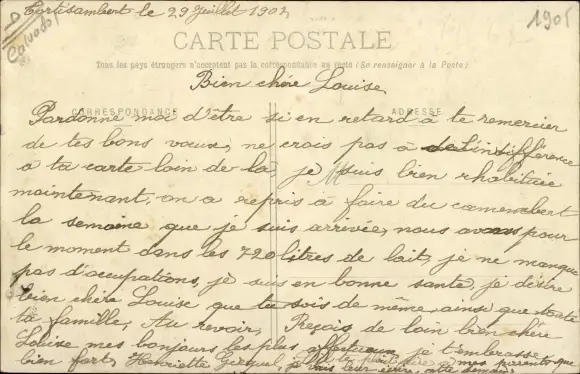 Tortisambert le 29 Juillet 1902
1905
Calvados
CARTE POSTALE
Tous les pays étrangers n'acceptent pas la correspondance au recto (Se renseigner à la Poste)
Bien chère Louise,
CORRESPONDANCE
ADRESSE
Pardonne moi d'être si en retard à te remercier
de tes bons vœux, ne crois pas à indifférence
a ta carte loin de la, je suis bien rhabituée
maintenant, on a repris à faire du camembert
la semaine que je suis arrivée, nous avons pour
le moment dans les 720 litres de lait, je ne manque
pas d'occupations, je suis en bonne santé, je désire
bien chère Louise que tu sois de même, ainsi que toute
ta famille, Au revoir, Reçois de loin bien chère
Louise mes bonjours les plus affectueux je t'embrasse
bien fort, Henriette
mes parents que
je vais leur écrire cette semaine